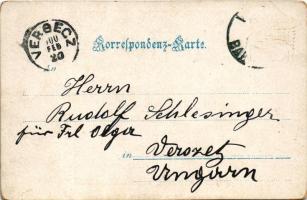 VERSECZ
900
FEB
20
Korrespondenz-Karte.
An
Herrn
Rudolf Schlesinger
für Frl Olga
in Verszet
Ungarn